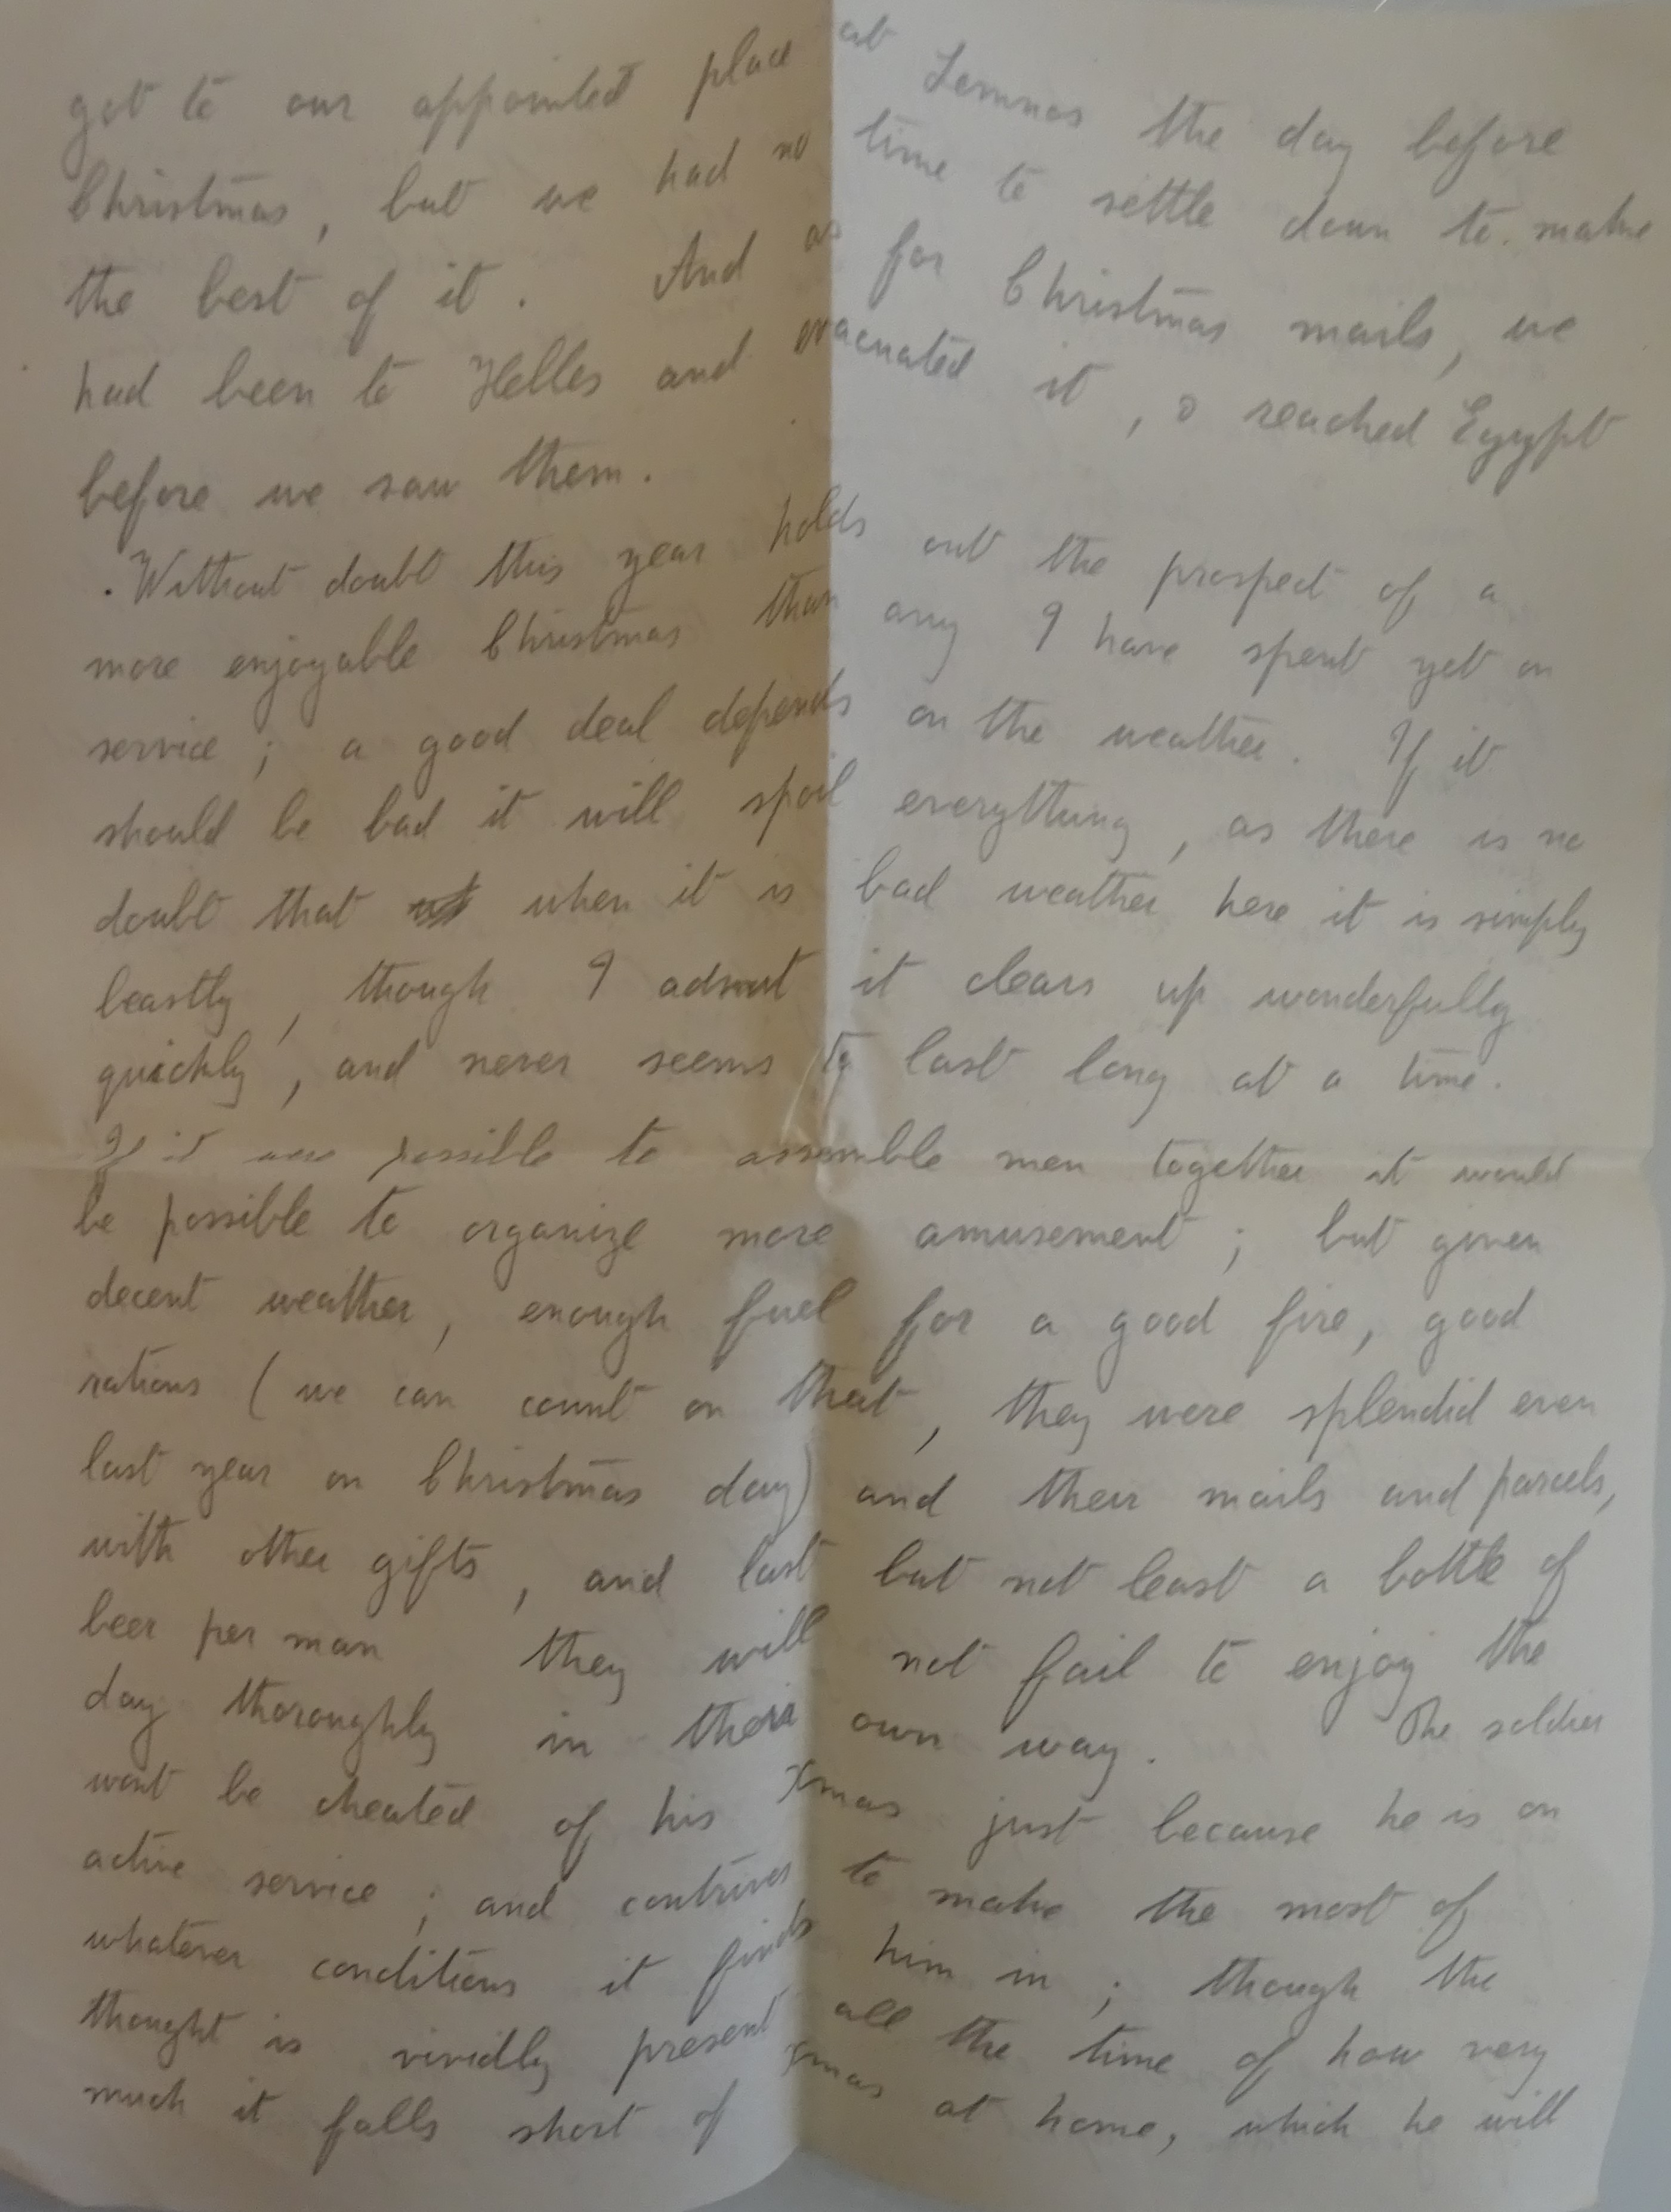 got to our appointed place at Lemnos the day before
Christmas, but we had no time to settle down to make
the best of it. And as for Christmas mails, we
had been to Helles and evacuated it, & reached Egypt
before we saw them.
Without doubt this year holds out the prospect of a
more enjoyable Christmas than any I have spent yet on
service; a good deal depends on the weather. If it
should be bad it will spoil everything, as there is no
doubt that when it is bad weather here it is simply
beastly, though I admit it clears up wonderfully
quickly, and never seems to last long at a time.
If it were possible to assemble men together it would
be possible to organize more amusement; but given
decent weather, enough fuel for a good fire, good
rations (we can count on that, they were splendid even
last year on Christmas day) and their mails and parcels,
with other gifts, and last but not least a bottle of
beer per man they will not fail to enjoy the
day thoroughly in their own way. The soldier
wont be cheated of his Xmas just because he is on
active service; and contrives to make the most of
whatever conditions it finds him in; though the
thought is vividly present all the time of how very
much it falls short of Xmas at home, which he will